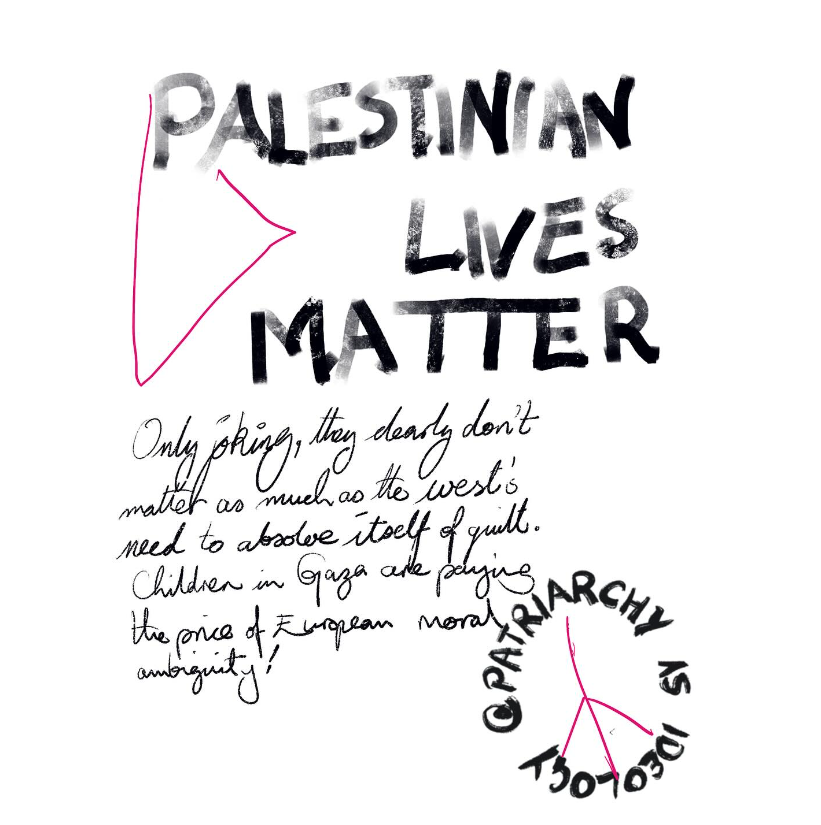 PALESTINIAN
LIVES
MATTER
Only joking, they clearly don't
matter as much as the west's
need to absolve itself of guilt.
Children in Gaza are paying
the price of European moral
ambiguity!
@PATRIARCHY IS IDEOLOGY